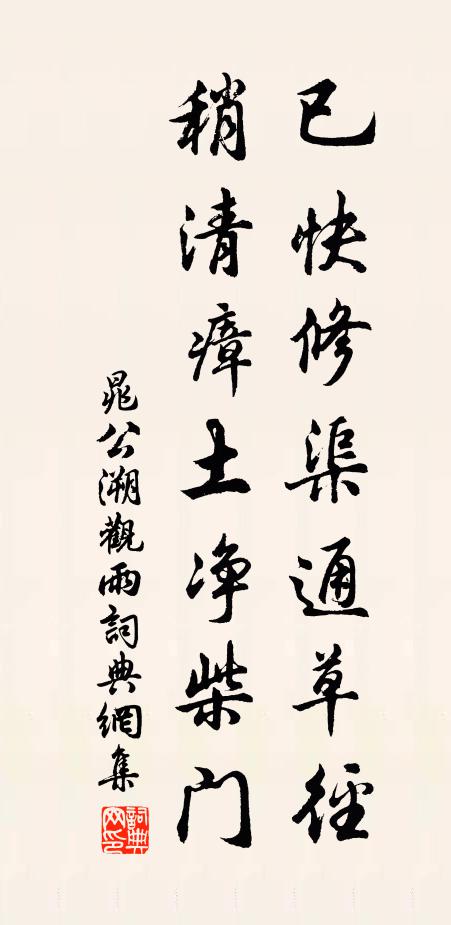 已快修渠通草徑
稍清瘴土净柴门
晁公溯觀雨詞典網集
詞典網印